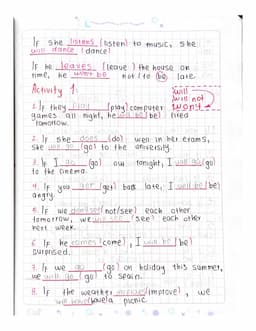 IF she listens (listen) to music, she
will dance (dance)
IF he leaves (leave) the house on
time, he won't be not (to (be) late.
Activity 1.
will
will not
won't
1. IF they play (play) computer
games all night, he will be (be) tired
tomorrow.
2. IF she does (do) well in her exams,
she will go (go) to the university.
3. IF I go (go) out tonight, I will go (go)
to the cinema.
4. IF you get (get) back late, I will be (be)
angry.
5. IF we don't see (not/see) each other
tomorrow, we will see (see) each other
next week.
6. IF he comes (come), I will be (be)
surprised.
7. IF we go (go) on holiday this summer,
we will go (go) to Spain.
8. IF the weather improve (improve), we
will have (have) a picnic.